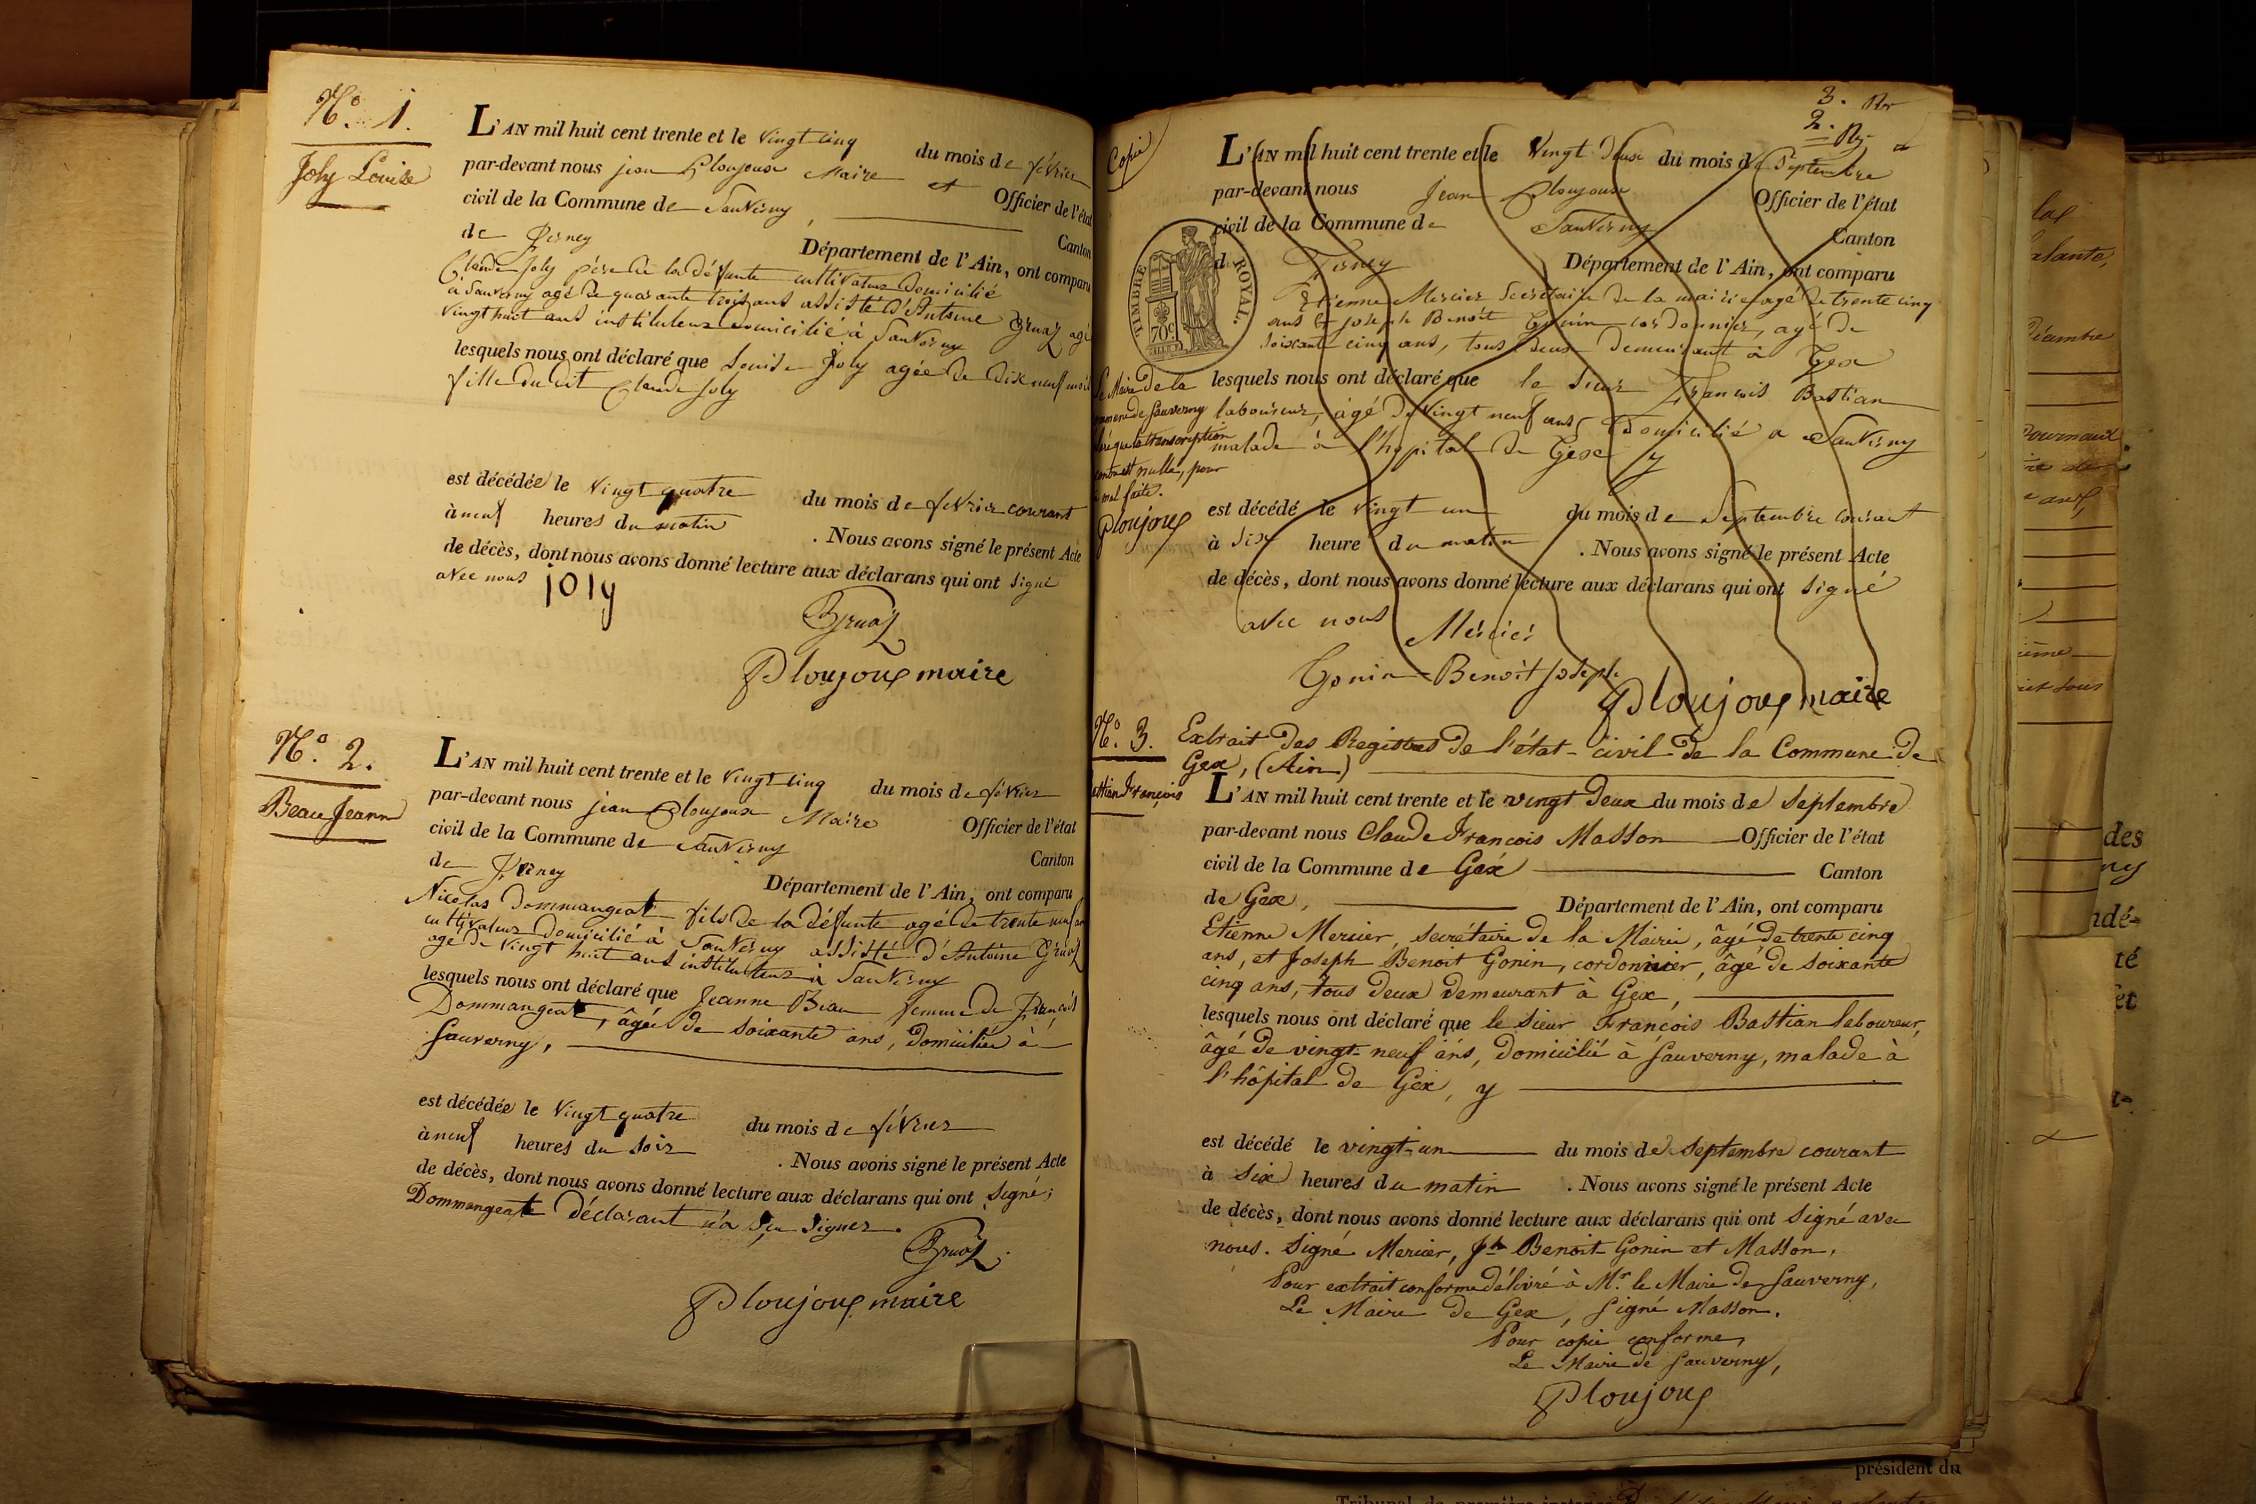 N.º 1.
Joly Louise
L'AN mil huit cent trente et le vingt cinq du mois de février
par-devant nous jean Ploujoux Maire et Officier de l'état
civil de la Commune de Sauverny Canton
de Ferney Département de l'Ain, ont comparu
Claude Joly père de la défunte cultivateur domicilié
a Sauverny agé de quarante trois ans assisté d'Antoine Gruaz agé
vingt huit ans instituteur domicilié à Sauverny
lesquels nous ont déclaré que Louise Joly agée de dix neuf mois
fille du dit Claude Joly
est décédée le vingt quatre du mois de février courant
à neuf heures du matin . Nous avons signé le présent Acte
de décès, dont nous avons donné lecture aux déclarans qui ont signé
avec nous joly
Gruaz
Ploujoux maire
N.º 2.
Beau Jeanne
L'AN mil huit cent trente et le vingt cinq du mois de février
par-devant nous jean Ploujoux Maire Officier de l'état
civil de la Commune de Sauverny Canton
de Ferney Département de l'Ain, ont comparu
Nicolas Dommangeat fils de la défunte agé de trente neuf an
cultivateur domicilié à Sauverny assisté d'Antoine Gruaz
agé de vingt huit ans instituteur à Sauverny
lesquels nous ont déclaré que Jeanne Beau femme de François
Dommangeat, âgée de soixante ans, domiciliée à
Sauverny,
est décédée le vingt quatre du mois de février
à neuf heures du soir . Nous avons signé le présent Acte
de décès, dont nous avons donné lecture aux déclarans qui ont signé;
Dommangeat déclarant n'a su signer.
Gruaz
Ploujoux maire
3. Rr
2. Rr
Copié
L'AN mil huit cent trente et le vingt deux du mois de Septembre
par-devant nous Jean Ploujoux Officier de l'état
civil de la Commune de Sauverny Canton
d Ferney Département de l'Ain, ont comparu
TIMBRE ROYAL.
70c.
Etienne Mercier Secrétaire de la mairie agé de trente cinq
ans et joseph Benoit Gonin cordonnier, agé de
soixante cinq ans, tous deux demeurant à Gex
lesquels nous ont déclaré que le sieur François Bastian
laboureur, âgé de vingt neuf ans, Domicilié a Sauverny
malade à l'hopital de Gex y
Le Maire de la
commune de Sauverny
que la transcription
contre est nulle, pour
mal faite.
Ploujoux
est décédé le vingt un du mois de Septembre courant
à six heure du matin . Nous avons signé le présent Acte
de décès, dont nous avons donné lecture aux déclarans qui ont signé
avec nous Mercier
Gonin Benoit joseph
Ploujoux maire
N.º 3.
Bastian François
Extrait des Registres de l'état-civil de la Commune de
Gex, (Ain)
L'AN mil huit cent trente et le vingt deux du mois de Septembre
par-devant nous Claude François Masson Officier de l'état
civil de la Commune de Gex Canton
de Gex, Département de l'Ain, ont comparu
Etienne Mercier, secrétaire de la Mairie, âgé de trente cinq
ans, et Joseph Benoit Gonin, cordonnier, âgé de soixante
cinq ans, tous deux demeurant à Gex,
lesquels nous ont déclaré que le sieur François Bastian laboureur,
âgé de vingt-neuf ans, domicilié à Sauverny, malade à
l'hôpital de Gex, y
est décédé le vingt-un du mois de septembre courant
à six heures du matin . Nous avons signé le présent Acte
de décès, dont nous avons donné lecture aux déclarans qui ont signé avec
nous. Signé Mercier, Jh Benoit Gonin et Masson.
Pour extrait conforme délivré à Mr. le Maire de Sauverny,
Le Maire de Gex, signé Masson.
Pour copie conforme,
Le Maire de Sauverny,
Ploujoux
des
ny
ndé-
té
et
président du
Tribunal de première instance